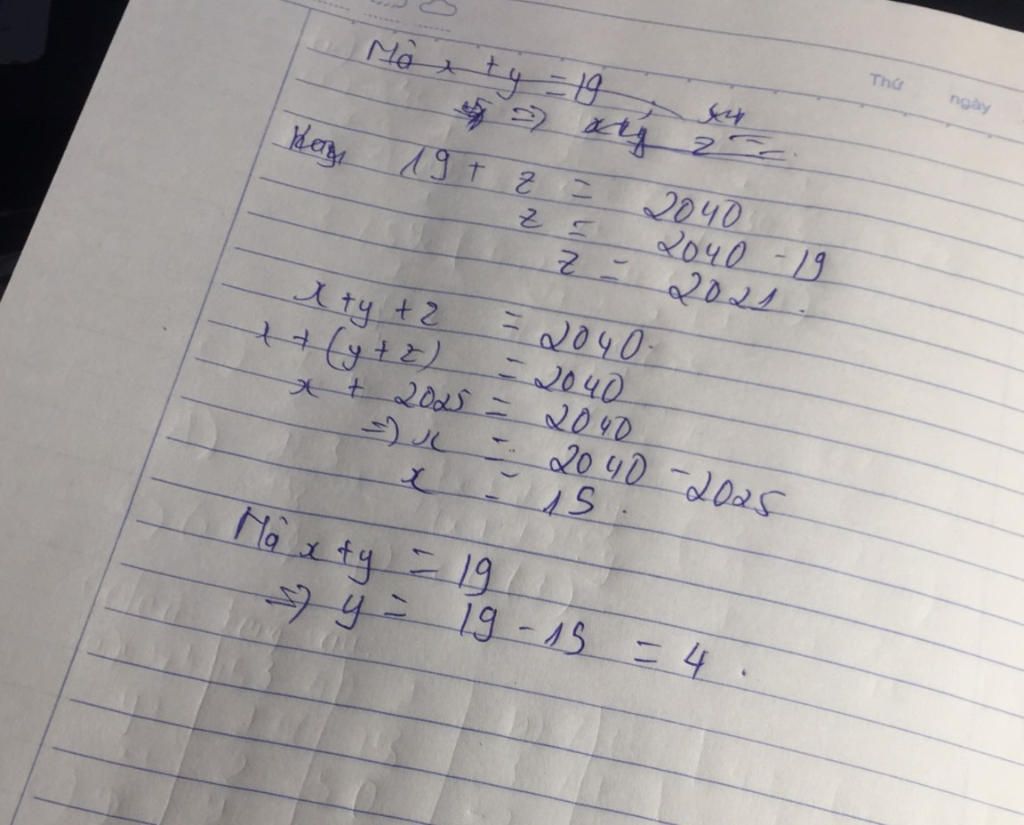 Thứ ngày
Mà x + y = 19
⇒ z =
19 + z = 2040
z = 2040 - 19
z = 2021.
x + y + z = 2040.
x + (y + z) = 2040
x + 2025 = 2040
⇒ x = 2040 - 2025
x = 15.
Mà x + y = 19
⇒ y = 19 - 15 = 4.